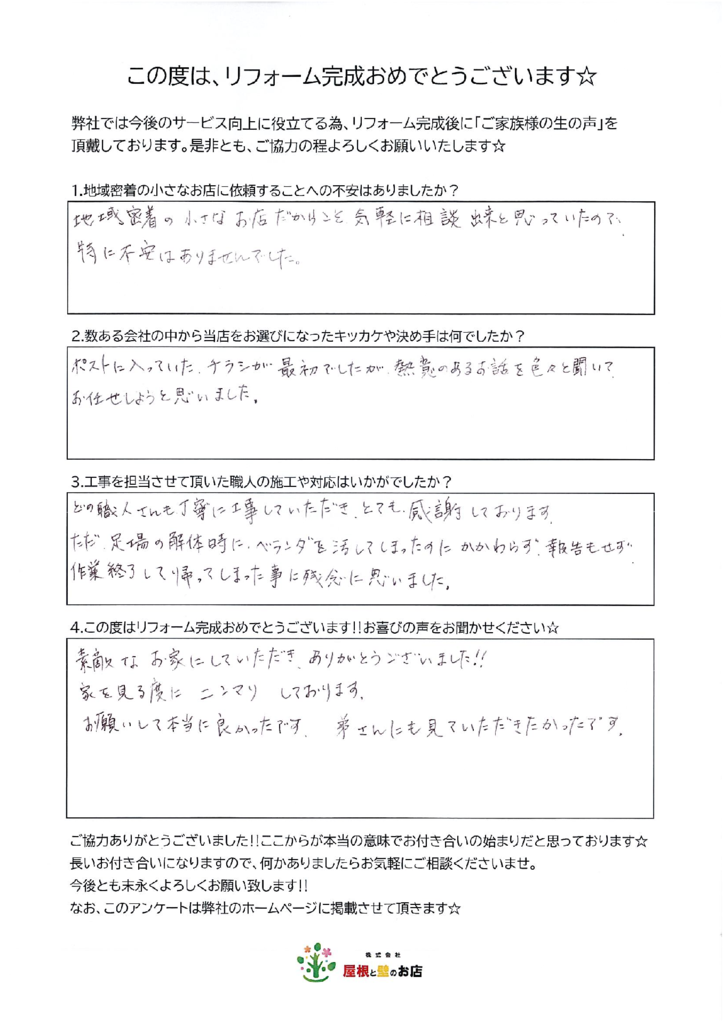 この度は、リフォーム完成おめでとうございます☆
弊社では今後のサービス向上に役立てる為、リフォーム完成後に「ご家族様の生の声」を
頂戴しております。是非とも、ご協力の程よろしくお願いいたします☆
1.地域密着の小さなお店に依頼することへの不安はありましたか？
地域密着の小さなお店だからこそ気軽に相談出来と思っていたので、
特に不安はありませんでした。
2.数ある会社の中から当店をお選びになったキッカケや決め手は何でしたか？
ポストに入っていた、チラシが最初でしたが、熱意のあるお話を色々と聞いて
お任せしようと思いました。
3.工事を担当させて頂いた職人の施工や対応はいかがでしたか？
どの職人さんも丁寧に工事していただき、とても感謝しております。
ただ、足場の解体時に、ベランダを汚してしまったのにかかわらず、報告もせず
作業終了して帰ってしまった事に残念に思いました。
4.この度はリフォーム完成おめでとうございます!!お喜びの声をお聞かせください☆
素敵なお家にしていただき、ありがとうございました!!
家を見る度に ニンマリ しております。
お願いして本当に良かったです。 弟さんにも見ていただきたかったです。
ご協力ありがとうございました!!ここからが本当の意味でお付き合いの始まりだと思っております☆
長いお付き合いになりますので、何かありましたらお気軽にご相談くださいませ。
今後とも末永くよろしくお願い致します!!
なお、このアンケートは弊社のホームページに掲載させて頂きます☆
株式会社
屋根と壁のお店